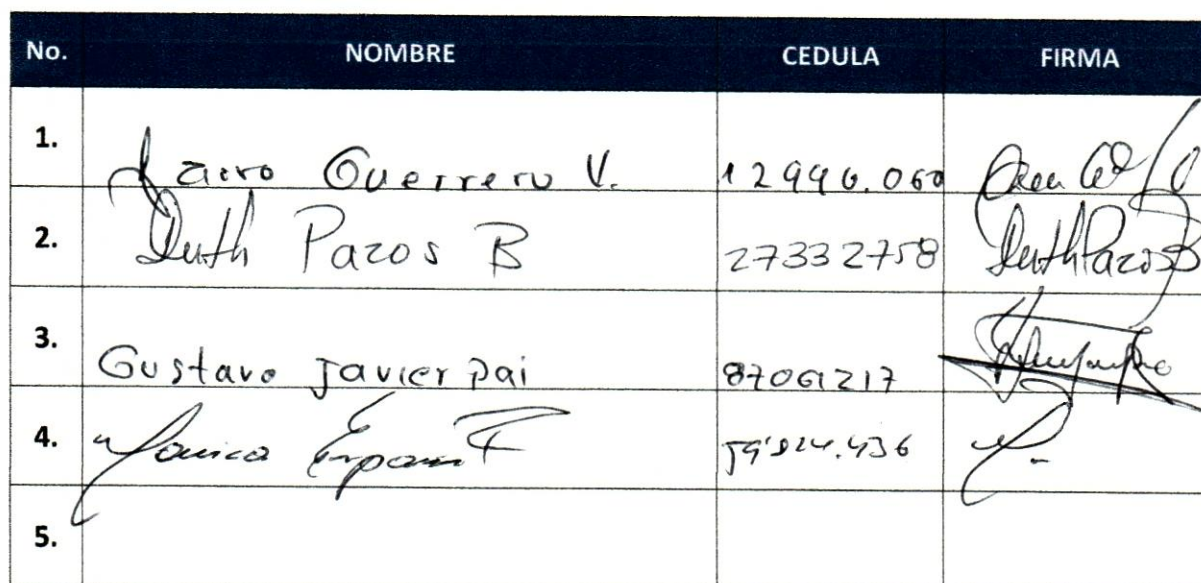 No. NOMBRE CEDULA FIRMA
1. Jairo Guerrero V. 12996.060
2. Ruth Pazos B 27332758 Ruth Pazos B
3. Gustavo Javier Pai 87061217
4. Monica
5.